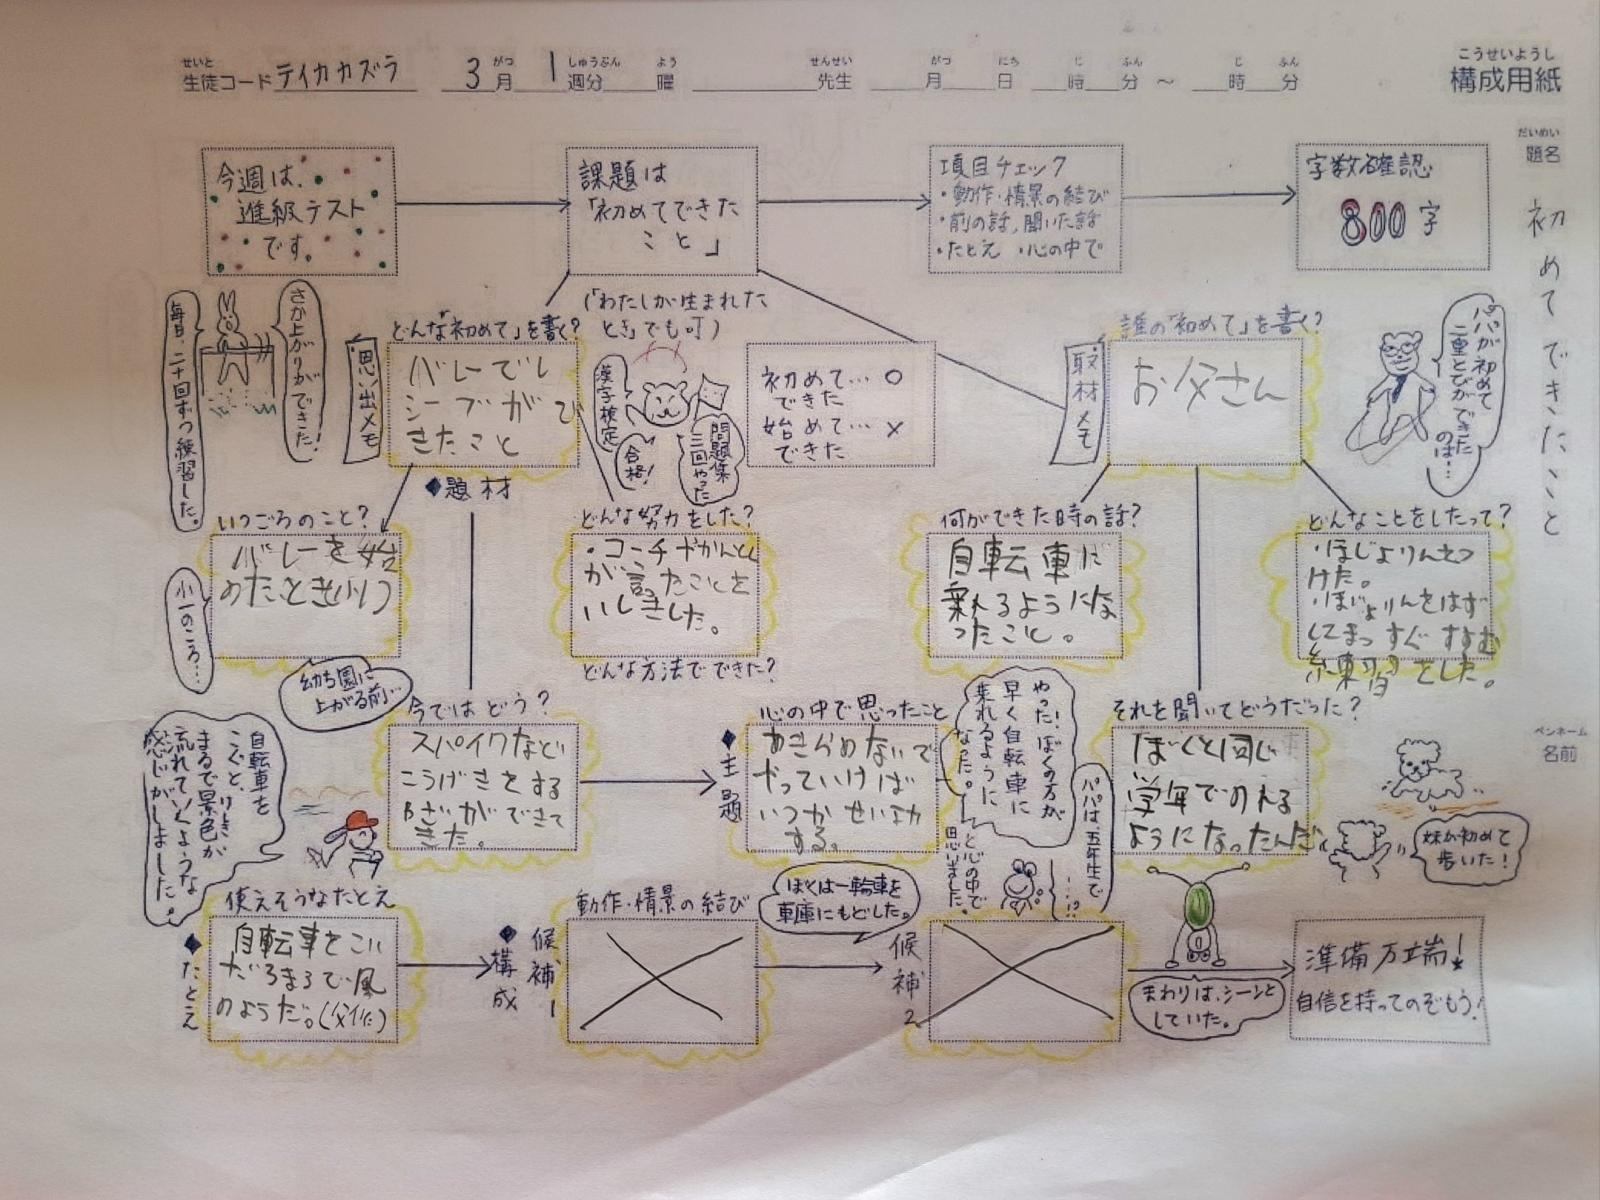 せいと がつ しゅうぶん よう せんせい がつ にち じ ふん じ ふん こうせいようし
生徒コード テイカカズラ 3月 1週分 曜 先生 月 日 時 分 〜 時 分 構成用紙
だいめい
題名
初めてできたこと
ペンネーム
名前
今週は、
進級テスト
です。
課題は
「初めてできた
こと」
項目チェック
・動作・情景の結び
・前の話、聞いた話
・たとえ ・心の中で
字数確認
800字
毎日、二十回ずつ練習した。
さか上がりができた!
思い出メモ
どんな「初めて」を書く?
(「わたしが生まれた
とき」でも可)
バレーでレ
シーブがで
きたこと
◆題材
漢字検定
合格!
問題集
三回やった
初めて… ○
できた
始めて… ×
できた
取材メモ
誰の「初めて」を書く?
お父さん
パパが初めて
二重とびができた
のは…
いつごろのこと?
バレーを始
めたとき(小1)
小一のころ…
幼ち園に
上がる前…
どんな努力をした?
・コーチやかんとく
が言ったことを
いしきした。
どんな方法でできた?
何ができた時の話?
自転車に
乗れるようにな
ったこと。
どんなことをしたって?
・ほじょりんをつ
けた。
・ほじょりんをはず
してまっすぐすすむ
練習をした。
今ではどう?
スパイクなど
こうげきをする
わざができて
きた。
◆主題
心の中で思ったこと
あきらめないで
やっていけば
いつかせいこう
する。
やった!ぼくの方が
早く自転車に
乗れるように
なった。
と心の中で
思いました。
パパは五年生で
…!?
それを聞いてどうだった?
ぼくと同じ
学年でのれる
ようになったんだ。
妹が初めて
歩いた!
自転車を
こぐと、けしきが
まるで景色が
流れていくような
感じがしました。
使えそうなたとえ
◆たとえ
自転車をこい
だらまるで風
のようだ。(父)
◆構成
候補1
動作・情景の結び
ぼくは一輪車を
車庫にもどした。
候補2
まわりは、シーンと
していた。
準備万端!
自信を持ってのぞもう!